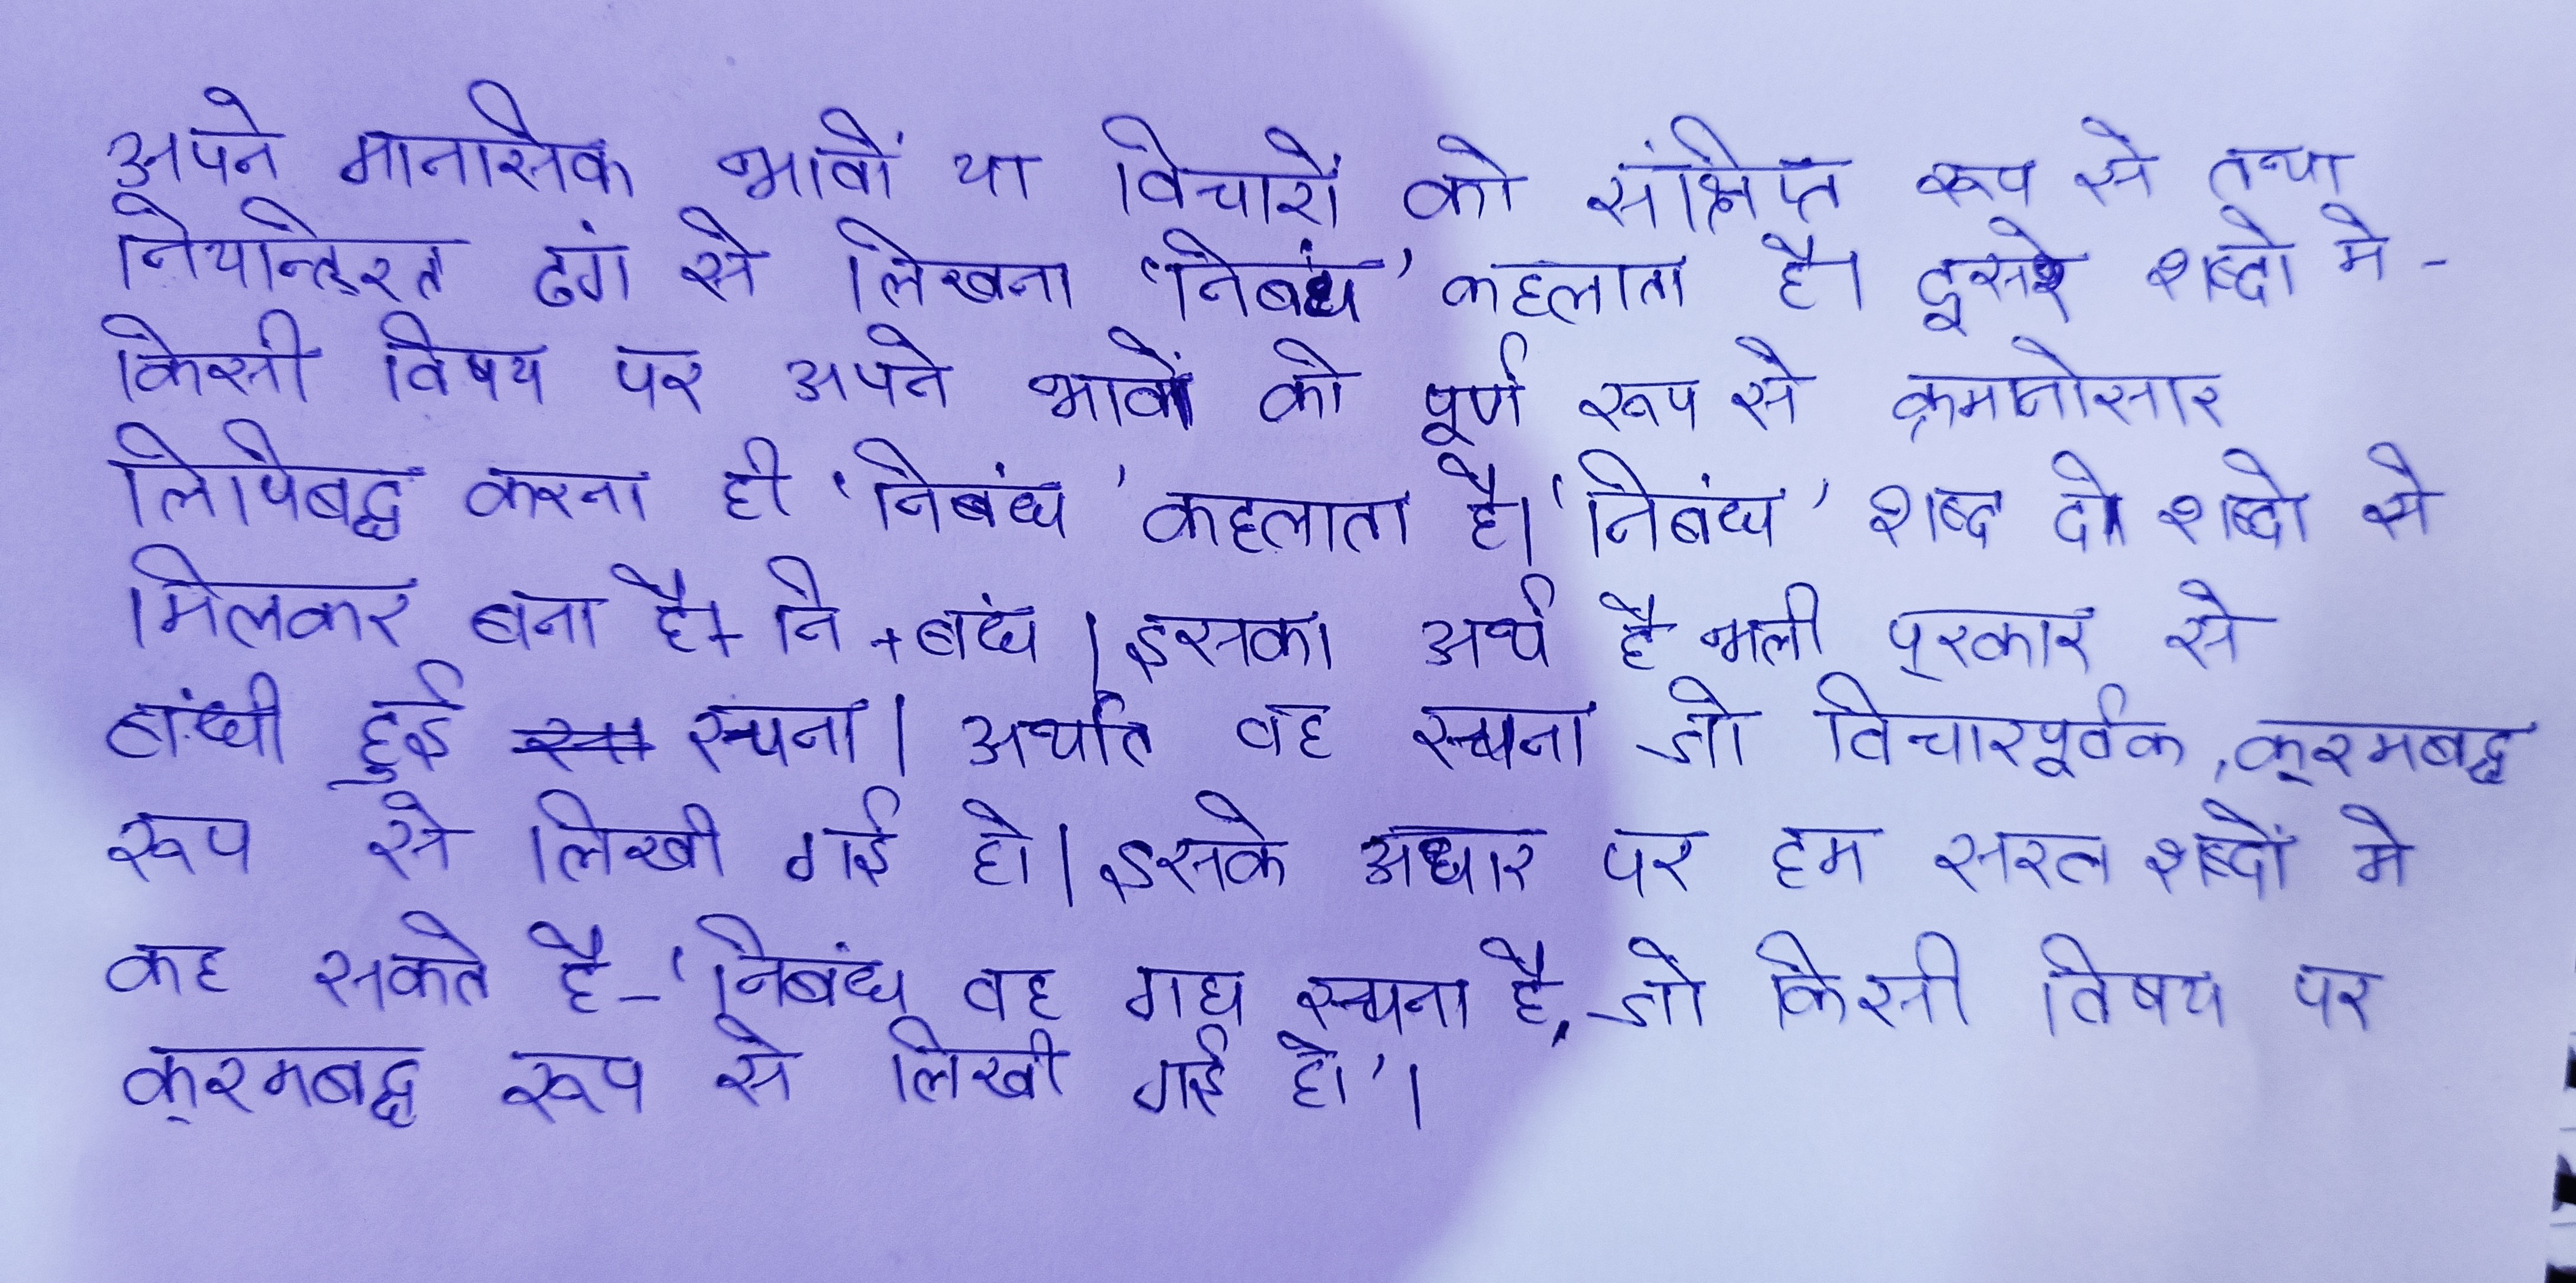 अपने मानसिक भावों या विचारों को संक्षिप्त रूप से तथा
नियन्त्रित ढंग से लिखना 'निबंध' कहलाता है। दूसरे शब्दो मे -
किसी विषय पर अपने भावों को पूर्ण रूप से क्रमानोसार
लिपिबद्ध करना ही 'निबंध' कहलाता है। 'निबंध' शब्द दो शब्दो से
मिलकर बना है- नि + बंध । इसका अर्थ है भली प्रकार से
बांधी हुई रचना। अर्थात वह रचना जो विचारपूर्वक, क्रमबद्ध
रूप से लिखी गई हो। इसके अधार पर हम सरल शब्दों मे
कह सकते है- 'निबंध वह गद्य रचना है, जो किसी विषय पर
क्रमबद्ध रूप से लिखी गई हो'।